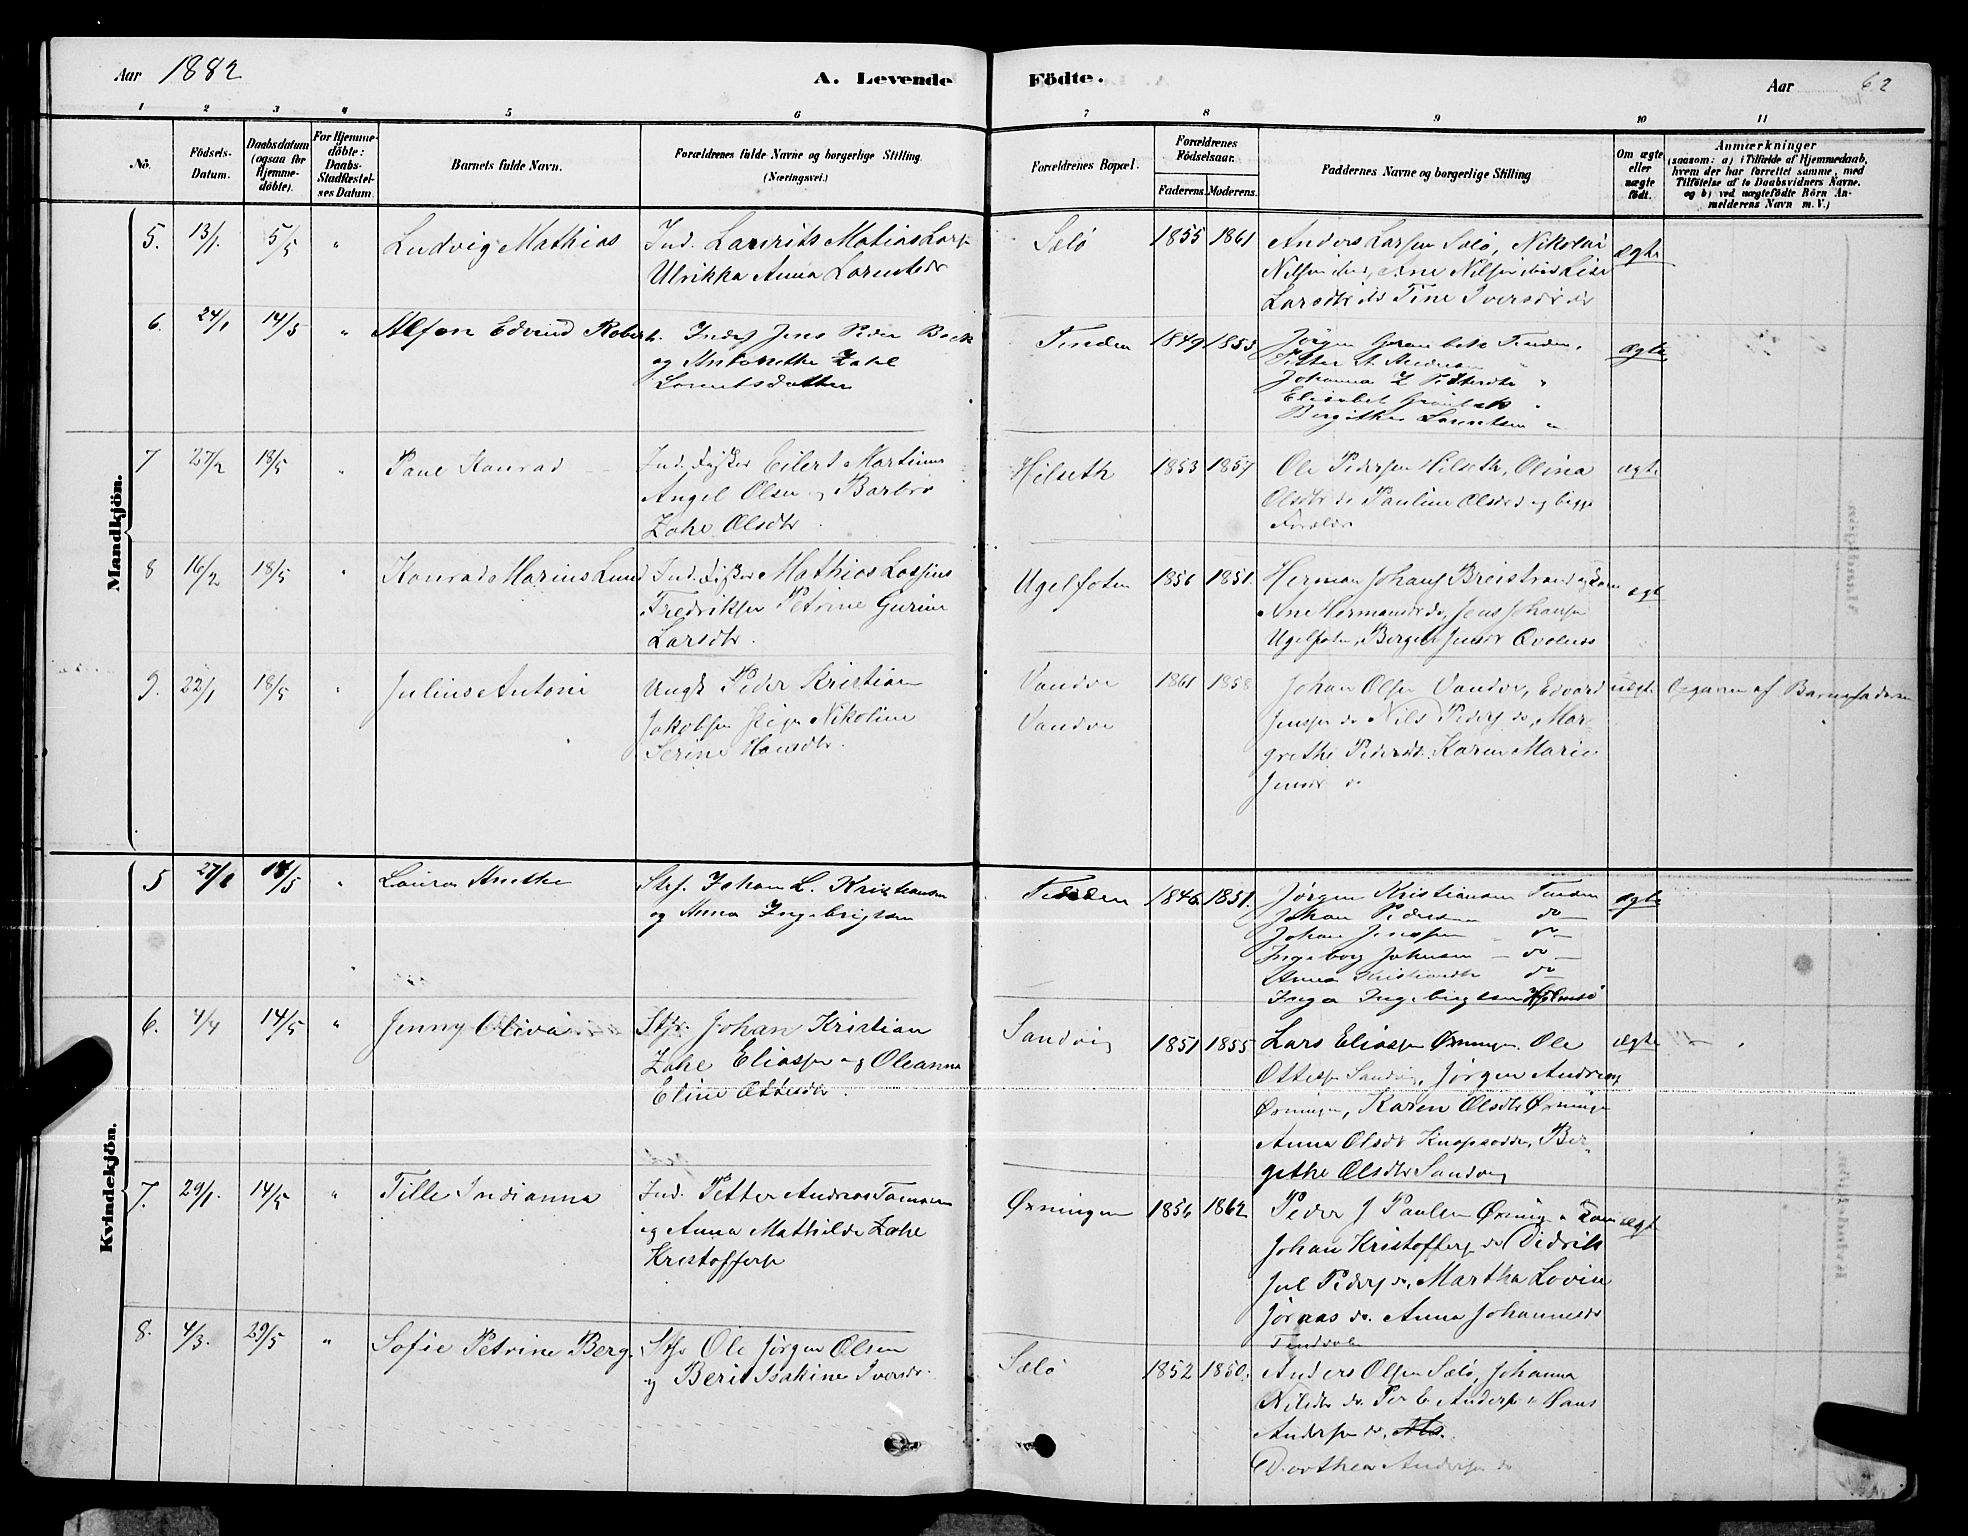 Aar 1882
A. Levende Födte.
Aar 62
1 2 3 4 5 6 7 8 9 10 11
No.
Födsels-Datum.
Daabsdatum (ogsaa for Hjemmedöbte).
For Hjemmedöbte: Daabs-Stadfæstelses Datum.
Barnets fulde Navn.
Forældrenes fulde Navne og borgerlige Stilling. (Næringsvei.)
Forældrenes Bopæl.
Forældrenes Födselsaar.
Faderens. Moderens.
Faddernes Navne og borgerlige Stilling
Om ægte eller uægte födt.
Anmærkninger
(saasom: a) i Tilfælde af Hjemmedaab, hvem der har forrettet samme, med Tilföielse af to Daabsvidners Navne. og b) ved uægtefödte Börn Anmelderens Navn m. V.)
Mandkjön.
5. 13/1. 5/5 " Ludvig Mathias
Ind. Laurits Matias Larss
Ulrikka Anna
Sælö 1855 1861
Anders Larsen Sælö, Nikolai
Nilsen Ane Nilsen Lise
Larsdtr do Tine Iversdtr do
ægte
6. 24/1 14/5 " Alfon Edvind Robert.
Inds Jens Peder Beck
og Antonette Zahl
Lorentsdatter
Tinden 1849 1853
Jørgen Grønbek Tinden,
Petter Andersen "
Johanna Z "
Elisabet Grönbek "
Bergithe Lorentsen "
ægte
7 27/2 18/5 " Paul Konrad
Ind. Fisker Eilert Martinus
Angel Olsen og Barbro
Zahl Olsdtr.
Hilseth 1853 1857
Ole Pedersen Hilseth, Olina
Olsdtr do Pauline Olsdtr do og begge
Foreldre
ægte
8 16/2 18/5 " Konrad Marius Lund
Ind. Fisker Mathias
Fredriksen Petrine Gurine
Larsdtr.
Ugelfoten 1856 1851.
Herman Johans Breistrand og Kone
Ane Hermansdtr do, Jens Johansen
Ugelfoten,
ægt
9. 22/1 18/5 " Julius Antoni
Ungk Peder Kristian
Jakobsen Pige Nikoline
Serine Hansdtr.
Vandve
Vandve
1861 1858
Johan Olsen Vandve, Edvard
Jenssen do Nils Peders do, Mar-
grethe Pedersdtr. Karen Marie
Jensdtr do
uægte
Opgaven af Barnefaderen
Kvindekjön.
5 27/1 18/5 " Laura Anethe
Strf. Johan L. Kristiansen
og Anna Ingebrigtsen
Tinden 1846. 1851.
Jørgen Kristiansen Tinden
Johan Pedersen do
Johan Jenssen do
Ingeborg Johnsen do
Anna Kristiansdtr do
Inga Ingebrigtsen
ægte
6. 4/4 14/5 " Jenny Oliva
Stfr. Johan Kristian
Zahl Eliassen og Oleanna
Eline Ottesdtr.
Sandvig 1851 1855
Lars Eliassen Ørningen Ole
Ottesen Sandvig, Jørgen Andreas
Ørningen, Karen Olsdtr Ørningen
Anna Olsdtr Knapsodden, Ber-
gethe Olsdtr Sandvig
ægte
7. 29/1. 14/5 " Tille Indianna
Ind. Petter Andreas
og Anna Mathilde Zahl
Kristoffers
Ørningen 1856 1862
Peder J Paulsen Ørning og Kone
Johan Kristoffers do Didrik
Jul Peders do, Martha Lovise
Jørnas do. Anna Johannesdtr
Tendvalen
ægte
8. 4/3. 29/5 " Sofie Petrine Berg.
Stfr Ole Jørgen Olsen
og Berit Isakine Iversdtr.
Sælö 1852 1850.
Anders Olsen Sælö, Johanna
Nilsdtr do Per E Anders " Hans
Andersen do,
Dorthea Andersen do